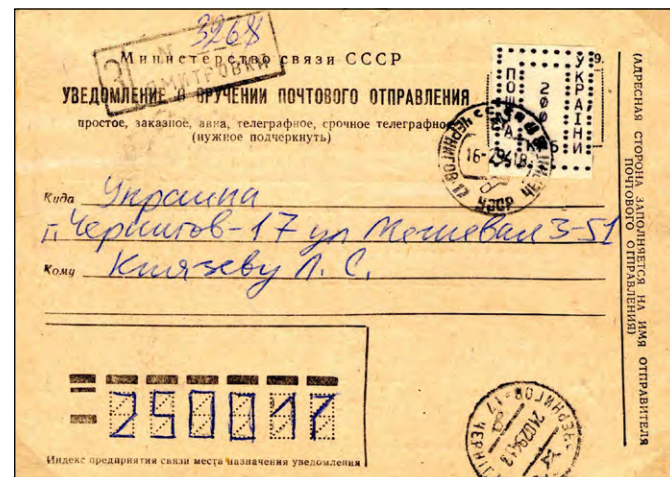 3268
З N
ДМИТРОВКИ
Министерство связи СССР
УВЕДОМЛЕНИЕ О ВРУЧЕНИИ ПОЧТОВОГО ОТПРАВЛЕНИЯ
простое, заказное, авиа, телеграфное, срочное телеграфное
(нужное подчеркнуть)
9.
ПОШТА
200
КБ
УКРАЇНИ
ЧЕРНИГОВ 17
УССР
Куда Украина
г. Чернигов-17 ул Межевая 3-51
Кому Князеву Л. С.
250017
Индекс предприятия связи места назначения уведомления
ЧЕРНИГОВ-17
(АДРЕСНАЯ СТОРОНА ЗАПОЛНЯЕТСЯ НА ИМЯ ОТПРАВИТЕЛЯ
ПОЧТОВОГО ОТПРАВЛЕНИЯ)